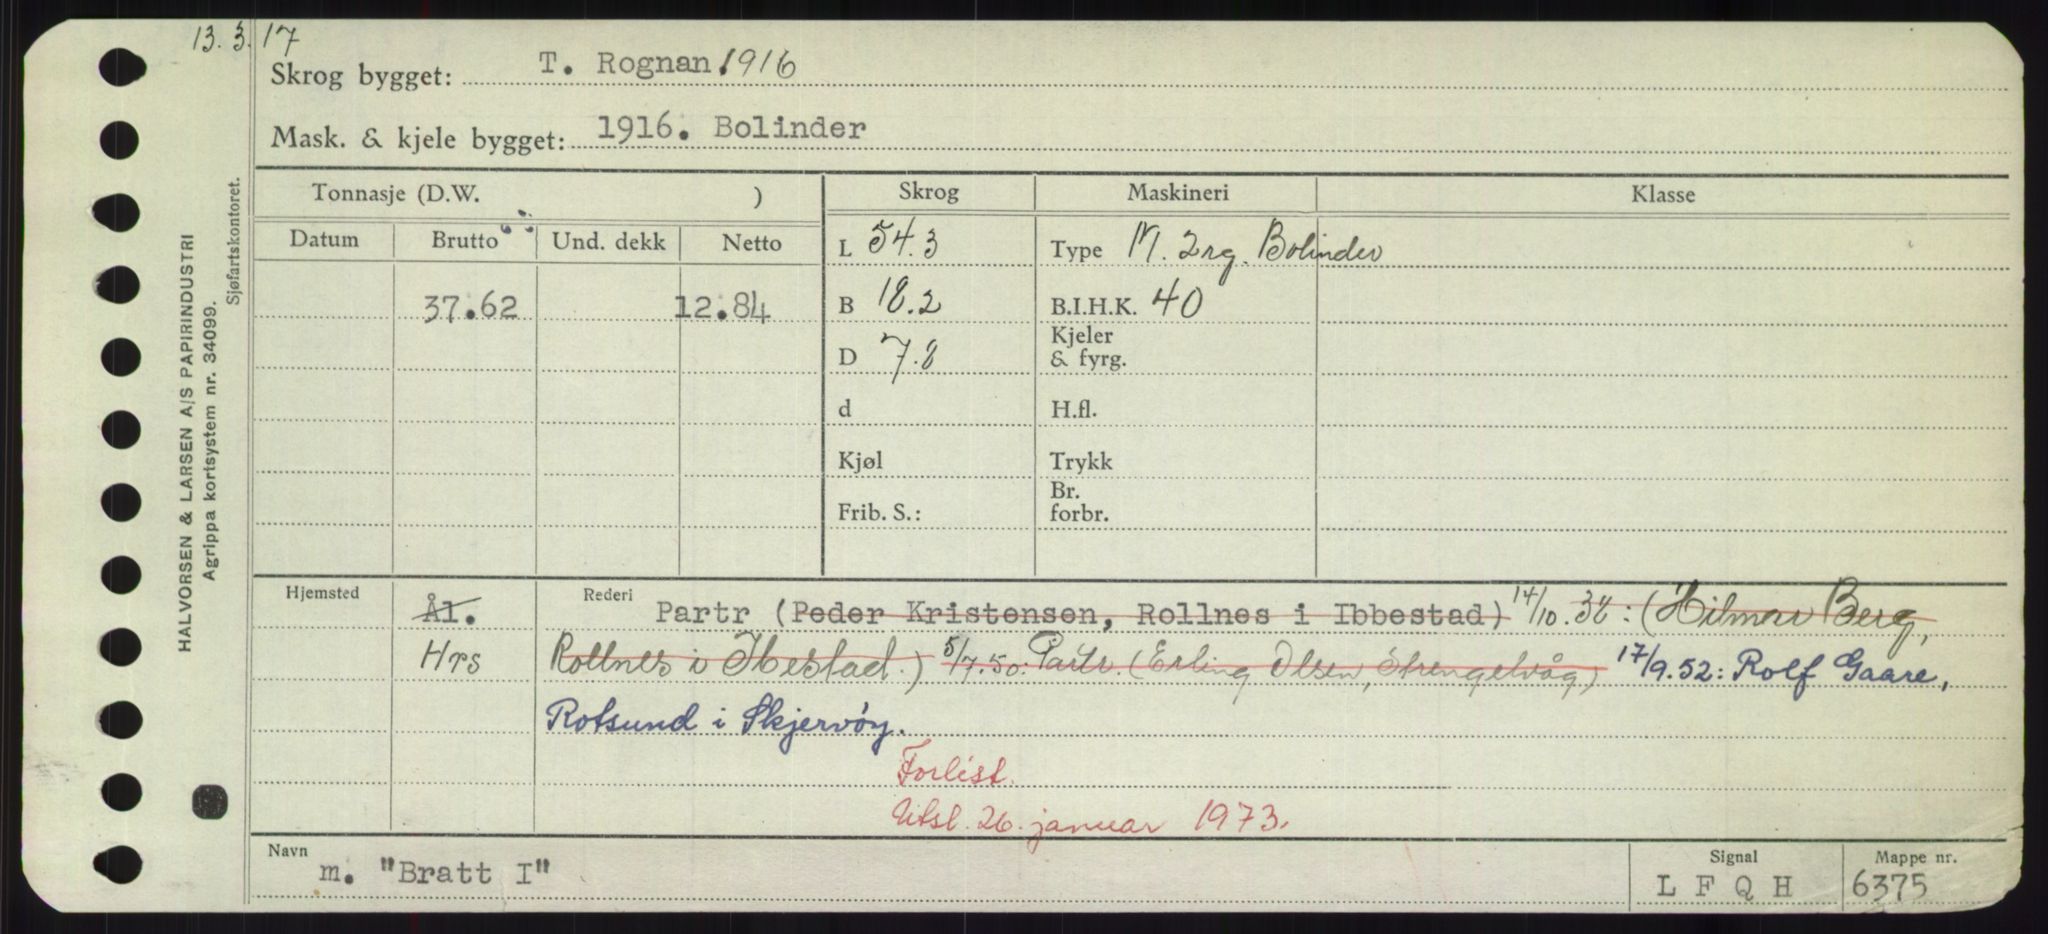 13.3.17
Skrog bygget: T. Rognan.1916
Mask. & kjele bygget: 1916. Bolinder
HALVORSEN & LARSEN A/S PAPIRINDUSTRI
Agrippa kortsystem nr. 34099.
Sjøfartskontoret.
Tonnasje (D.W. ) Skrog Maskineri Klasse
Datum Brutto Und. dekk Netto
L 54.3 Type M. 2rg. Bolinder
37.62 12.84 B 18.2 B.I.H.K. 40
D 7.8 Kjeler
& fyrg.
d H.fl.
Kjøl Trykk
Frib. S.: Br.
forbr.
Hjemsted Ål. Rederi Partr (Peder Kristensen, Rollnes i Ibbestad) 14/10.38: (Hilmar Berg,
Hrs Rollnes i Ibestad.) 5/7.50: Partr. (Erling Olsen, Strengelvåg) 17/9.52: Rolf Gaare,
Rotsund i Skjervöy.
Forlist.
Utsl. 26. januar 1973.
Navn m. "Bratt I" Signal L F Q H Mappe nr. 6375